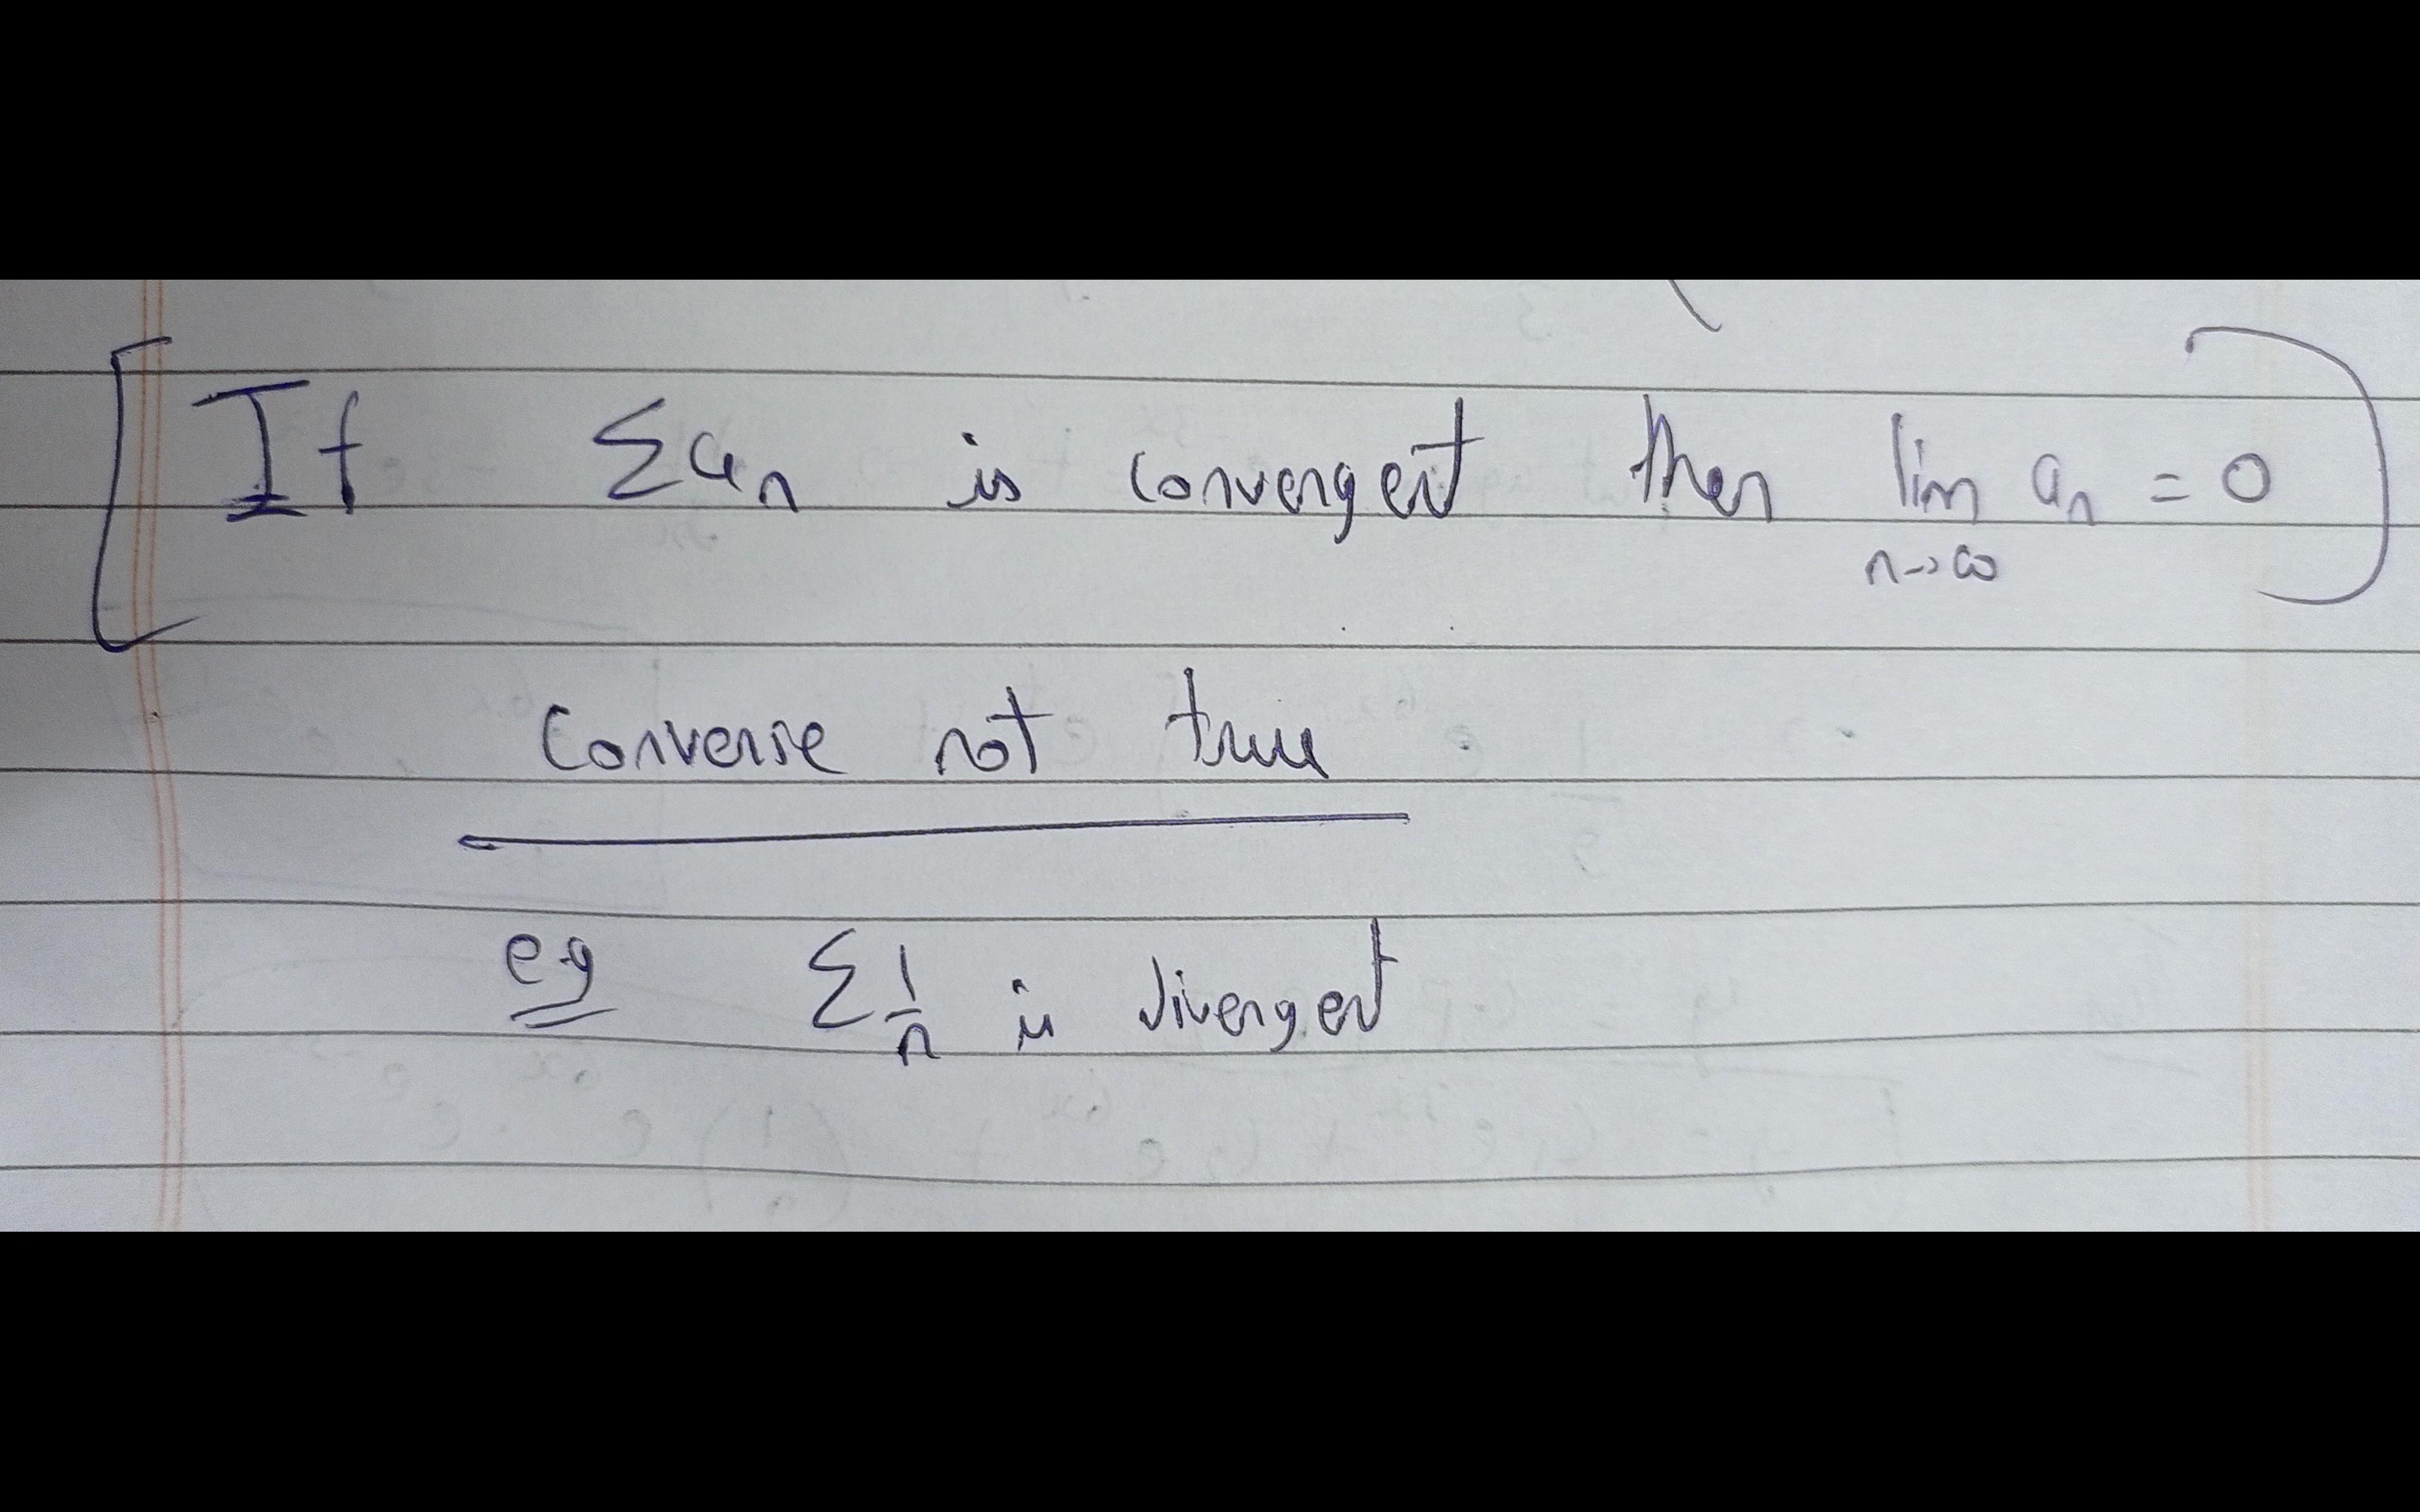 If Σaₙ is convergent then lim aₙ = 0
n→∞
Converse not true
eg Σ 1/n is divergent